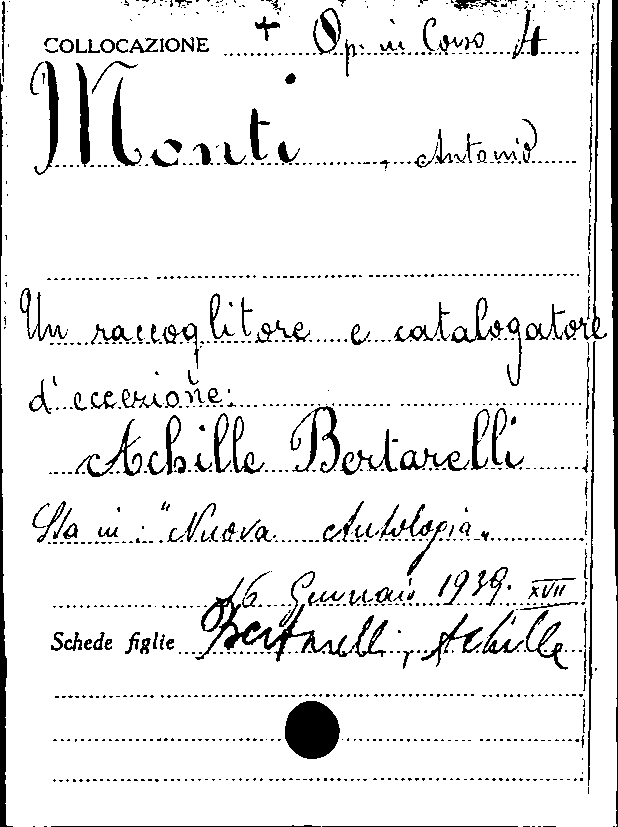 COLLOCAZIONE + Op. in Corso 4
Monti, Antonio
Un raccoglitore e catalogatore
d'eccezione:
Achille Bertarelli
Sta in: "Nuova Antologia„
16 Gennaio 1939. XVII
Schede figlie Bertarelli, Achille